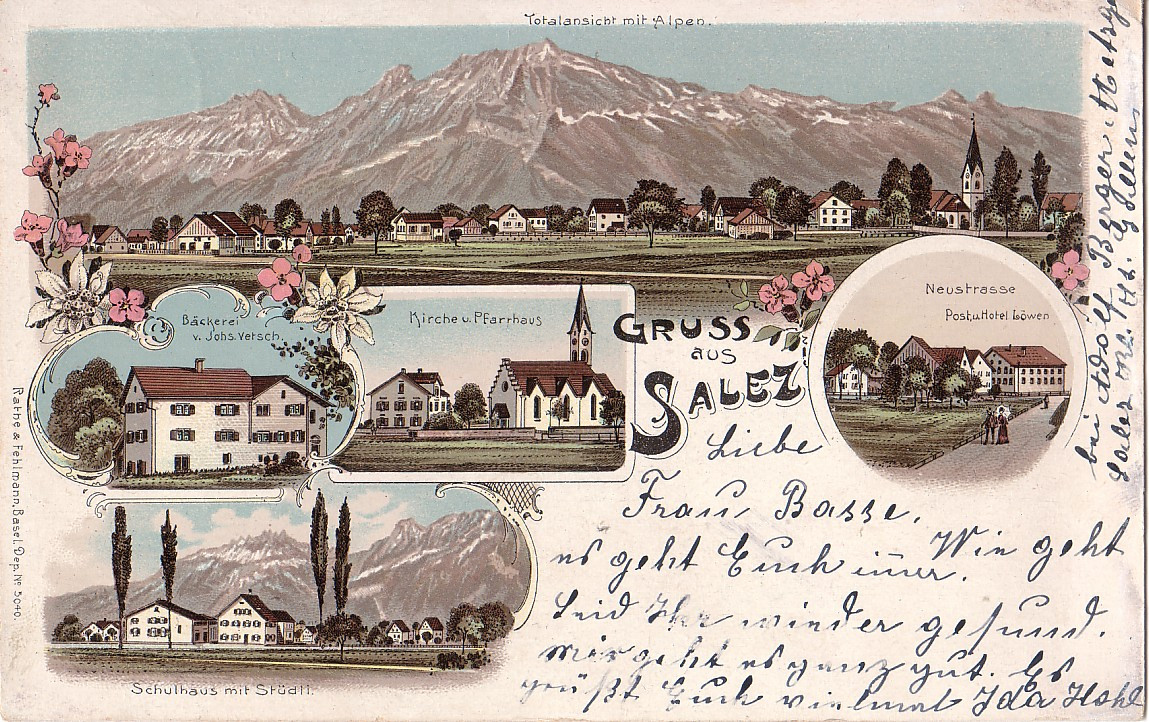 Totalansicht mit Alpen.
Bäckerei
v. Johs. Vetsch.
Kirche u. Pfarrhaus
GRUSS
aus
SALEZ
Neustrasse
Post u. Hotel Löwen
Schulhaus mit Städli.
Rathe & Fehlmann, Basel. Dep. No 5040.
Liebe
Frau Basse. Wie geht
es geht Euch im̄er.
Seid Ihr wieder gesund.
mir geht es ganz gut. Es
grüßt Euch vielmal Ida Hohl
bei Adolf Berger Metzg
Salez St. Gallen